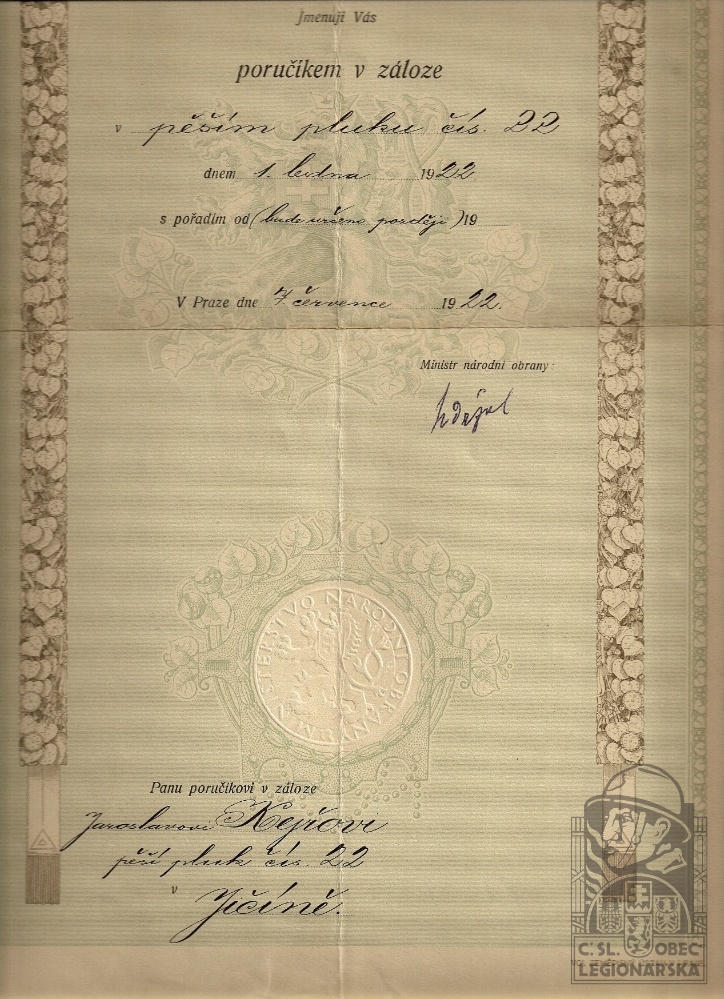 Jmenuji Vás
poručíkem v záloze
v pěším pluku čís. 22
dnem 1. ledna 1922
s pořadím od (bude určeno později) 19
V Praze dne 7 července 1922.
Ministr národní obrany:
MINISTERSTVO NÁRODNÍ OBRANY
Panu poručíkovi v záloze
Jaroslavovi Kejřovi
pěší pluk čís. 22
v Jičíně.
Č'SL. OBEC
LEGIONÁŘSKÁ